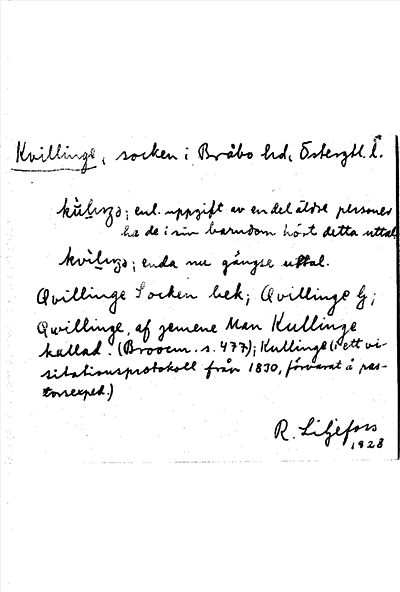 Kvillinge, socken i Bråbo hd, Östergtl. l.
enl. uppgift av en del äldre personer
ha de i sin barndom hört detta uttal.
enda nu gångse uttal.
Qvillinge Socken bek; Qvillinge G;
Qwillinge, af gemene Man Kullinge
kallad. (Broocm. s. 477); Kullinge (i ett vi-
sitationsprotokoll från 1830, förvarat å pas-
torsexped.)
R. Liljefors
1928